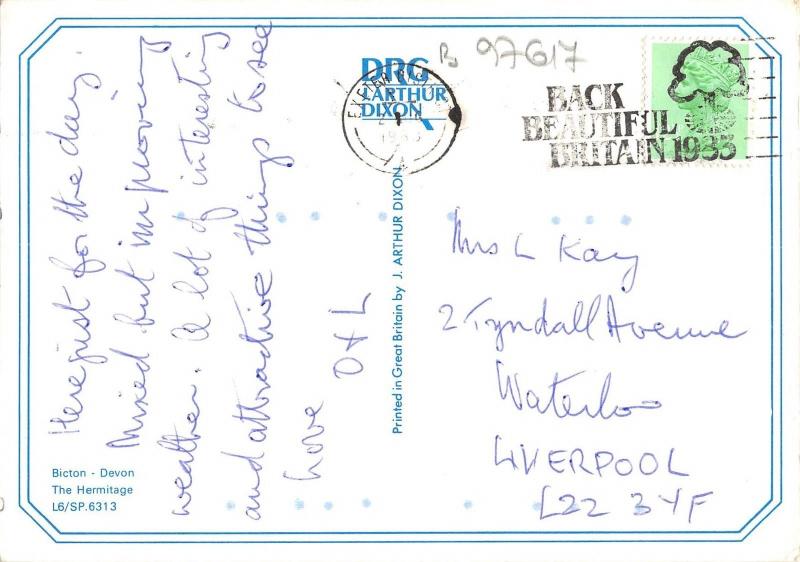 Here just for the day.
Mixed but improving
weather. A lot of interesting
and attractive things to see
Love O & L
Bicton - Devon
The Hermitage
L6/SP.6313
DRG
J. ARTHUR
DIXON
Printed in Great Britain by J. ARTHUR DIXON
B 97617
EXETER
BACK
BEAUTIFUL
BRITAIN 1985
Mrs L Kay
2 Tyndall Avenue
Waterloo
LIVERPOOL
L22 3YF